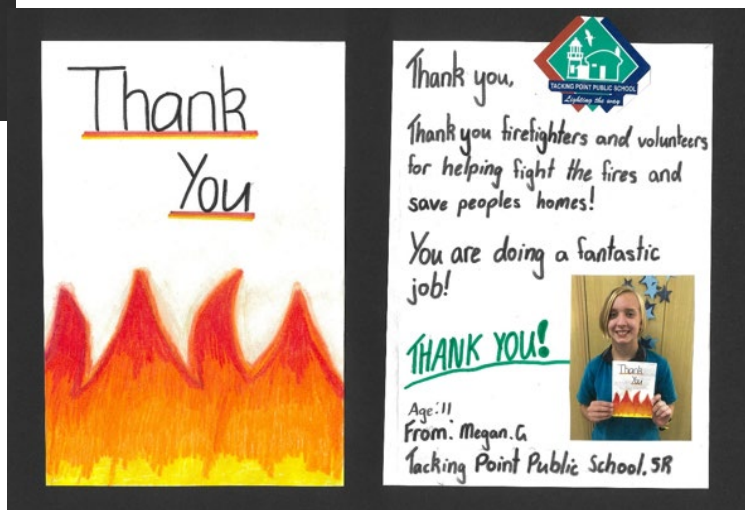 Thank
You
TACKING POINT PUBLIC SCHOOL
Lighting the way
Thank you,
Thank you firefighters and volunteers
for helping fight the fires and
save peoples homes!
You are doing a fantastic
job!
THANK YOU!
Thank
You
Age: 11
From: Megan.G
Tacking Point Public School. 5R